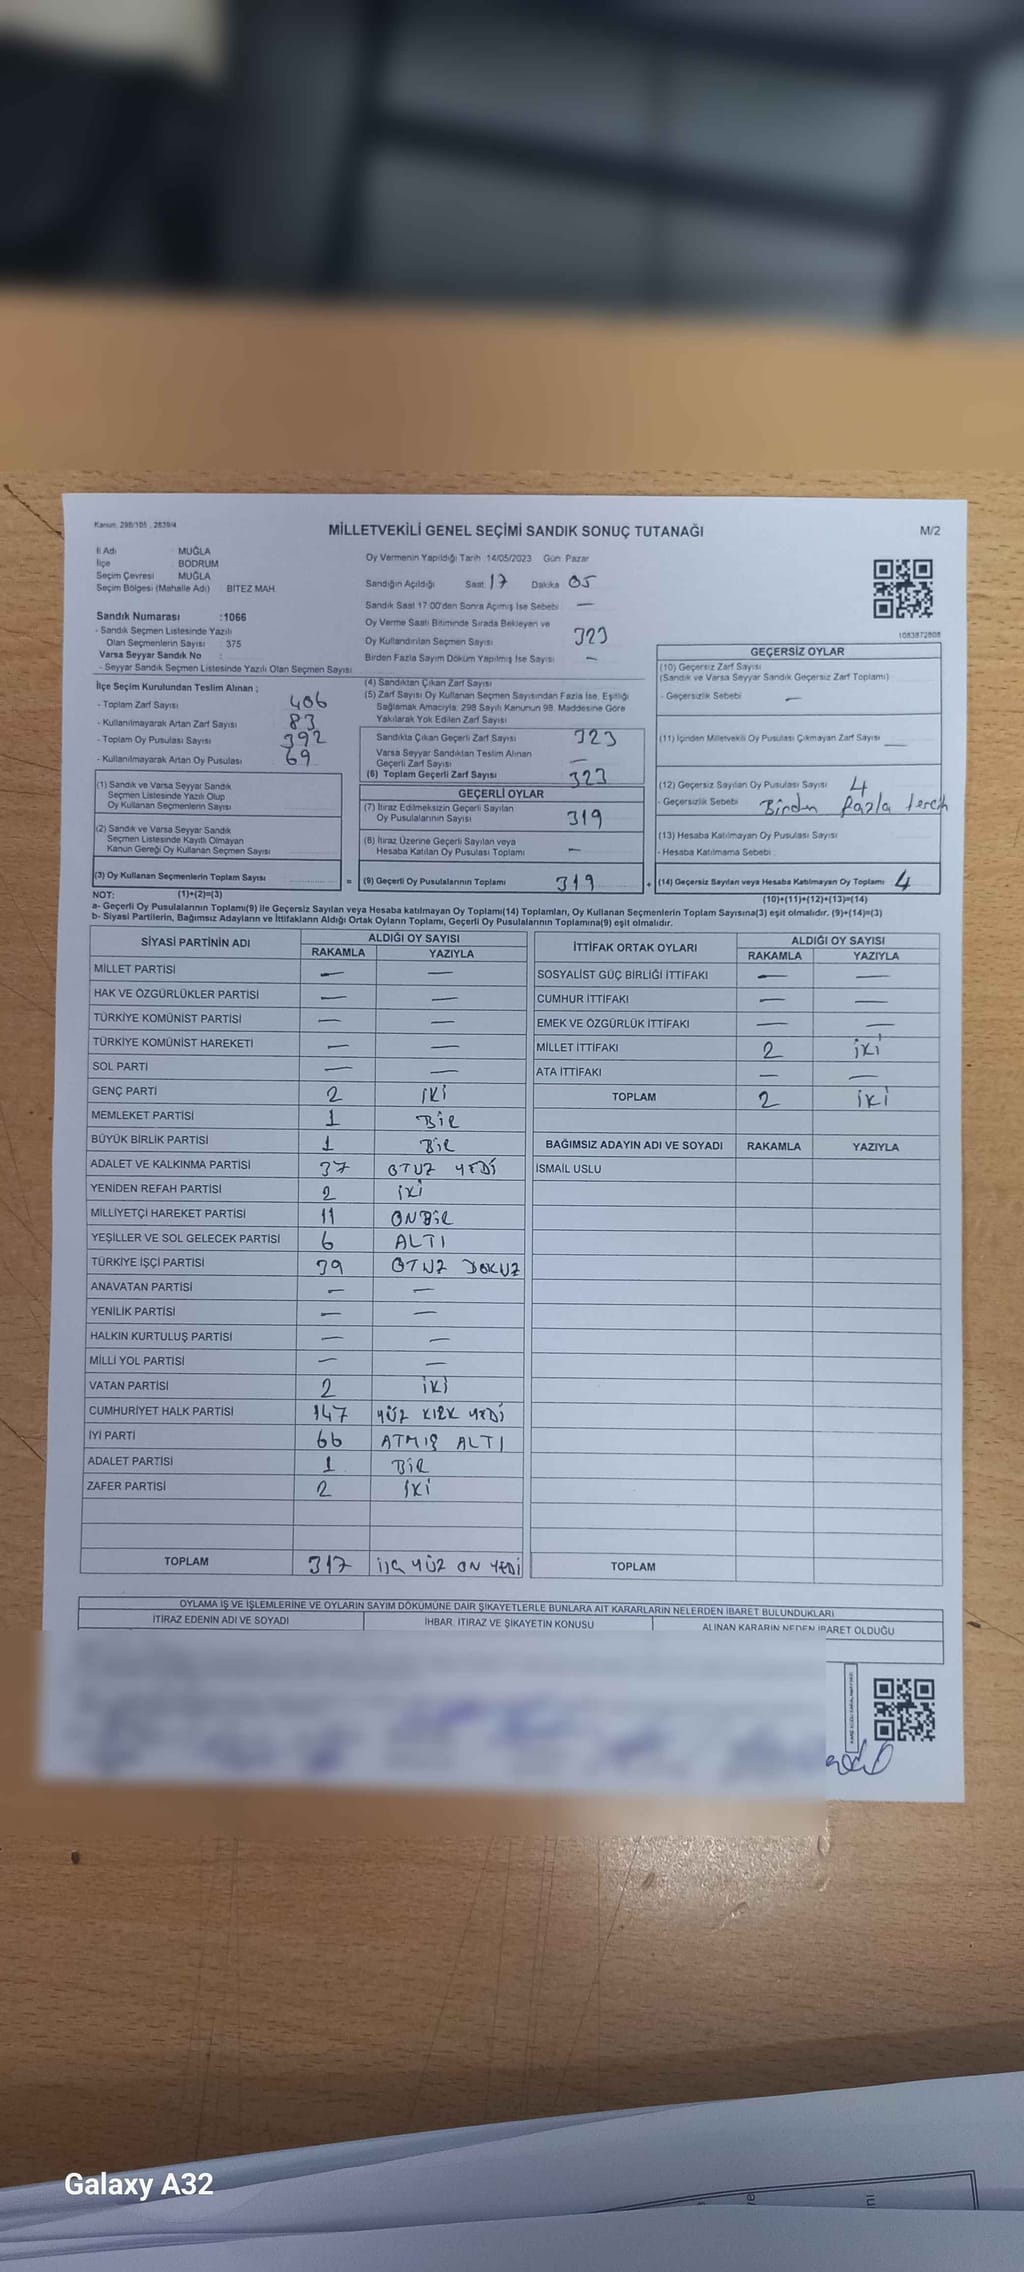 Kanun: 298/105 , 2839/4
MİLLETVEKİLİ GENEL SEÇİMİ SANDIK SONUÇ TUTANAĞI
M/2
İl Adı : MUĞLA
İlçe : BODRUM
Seçim Çevresi : MUĞLA
Seçim Bölgesi (Mahalle Adı) : BİTEZ MAH.
Sandık Numarası :1066
- Sandık Seçmen Listesinde Yazılı
Olan Seçmenlerin Sayısı : 375
Varsa Seyyar Sandık No :
- Seyyar Sandık Seçmen Listesinde Yazılı Olan Seçmen Sayısı
Oy Vermenin Yapıldığı Tarih :14/05/2023 Gün: Pazar
Sandığın Açıldığı Saat 17 Dakika 05
Sandık Saat 17:00'den Sonra Açılmış İse Sebebi —
Oy Verme Saati Bitiminde Sırada Bekleyen ve
Oy Kullandırılan Seçmen Sayısı 323
Birden Fazla Sayım Döküm Yapılmış İse Sayısı —
1083872808
İlçe Seçim Kurulundan Teslim Alınan ;
- Toplam Zarf Sayısı 406
- Kullanılmayarak Artan Zarf Sayısı 83
- Toplam Oy Pusulası Sayısı 392
- Kullanılmayarak Artan Oy Pusulası 69
(1) Sandık ve Varsa Seyyar Sandık
Seçmen Listesinde Yazılı Olup
Oy Kullanan Seçmenlerin Sayısı
(2) Sandık ve Varsa Seyyar Sandık
Seçmen Listesinde Kayıtlı Olmayan
Kanun Gereği Oy Kullanan Seçmen Sayısı
(3) Oy Kullanan Seçmenlerin Toplam Sayısı
(4) Sandıktan Çıkan Zarf Sayısı
(5) Zarf Sayısı Oy Kullanan Seçmen Sayısından Fazla İse, Eşitliği
Sağlamak Amacıyla, 298 Sayılı Kanunun 98. Maddesine Göre
Yakılarak Yok Edilen Zarf Sayısı
Sandıkta Çıkan Geçerli Zarf Sayısı 323
Varsa Seyyar Sandıktan Teslim Alınan
Geçerli Zarf Sayısı —
(6) Toplam Geçerli Zarf Sayısı 323
GEÇERLİ OYLAR
(7) İtiraz Edilmeksizin Geçerli Sayılan
Oy Pusulalarının Sayısı 319
(8) İtiraz Üzerine Geçerli Sayılan veya
Hesaba Katılan Oy Pusulası Toplamı —
= (9) Geçerli Oy Pusulalarının Toplamı 319 +
GEÇERSİZ OYLAR
(10) Geçersiz Zarf Sayısı
(Sandık ve Varsa Seyyar Sandık Geçersiz Zarf Toplamı)
- Geçersizlik Sebebi —
(11) İçinden Milletvekili Oy Pusulası Çıkmayan Zarf Sayısı —
(12) Geçersiz Sayılan Oy Pusulası Sayısı 4
- Geçersizlik Sebebi Birden fazla tercih
(13) Hesaba Katılmayan Oy Pusulası Sayısı
- Hesaba Katılmama Sebebi
(14) Geçersiz Sayılan veya Hesaba Katılmayan Oy Toplamı 4
NOT: (1)+(2)=(3)
(10)+(11)+(12)+(13)=(14)
a- Geçerli Oy Pusulalarının Toplamı(9) ile Geçersiz Sayılan veya Hesaba katılmayan Oy Toplamı(14) Toplamları, Oy Kullanan Seçmenlerin Toplam Sayısına(3) eşit olmalıdır. (9)+(14)=(3)
b- Siyasi Partilerin, Bağımsız Adayların ve İttifakların Aldığı Ortak Oyların Toplamı, Geçerli Oy Pusulalarının Toplamına(9) eşit olmalıdır.
SİYASİ PARTİNİN ADI ALDIĞI OY SAYISI
RAKAMLA YAZIYLA
MİLLET PARTİSİ — —
HAK VE ÖZGÜRLÜKLER PARTİSİ — —
TÜRKİYE KOMÜNİST PARTİSİ — —
TÜRKİYE KOMÜNİST HAREKETİ — —
SOL PARTİ — —
GENÇ PARTİ 2 İKİ
MEMLEKET PARTİSİ 1 BİR
BÜYÜK BİRLİK PARTİSİ 1 BİR
ADALET VE KALKINMA PARTİSİ 37 OTUZ YEDİ
YENİDEN REFAH PARTİSİ 2 İKİ
MİLLİYETÇİ HAREKET PARTİSİ 11 ONBİR
YEŞİLLER VE SOL GELECEK PARTİSİ 6 ALTI
TÜRKİYE İŞÇİ PARTİSİ 39 OTUZ DOKUZ
ANAVATAN PARTİSİ — —
YENİLİK PARTİSİ — —
HALKIN KURTULUŞ PARTİSİ — —
MİLLİ YOL PARTİSİ — —
VATAN PARTİSİ 2 İKİ
CUMHURİYET HALK PARTİSİ 147 YÜZ KIRK YEDİ
İYİ PARTİ 66 ATMIŞ ALTI
ADALET PARTİSİ 1 BİR
ZAFER PARTİSİ 2 İKİ
TOPLAM 317 ÜÇ YÜZ ON YEDİ
İTTİFAK ORTAK OYLARI ALDIĞI OY SAYISI
RAKAMLA YAZIYLA
SOSYALİST GÜÇ BİRLİĞİ İTTİFAKI — —
CUMHUR İTTİFAKI — —
EMEK VE ÖZGÜRLÜK İTTİFAKI — —
MİLLET İTTİFAKI 2 İKİ
ATA İTTİFAKI — —
TOPLAM 2 İKİ
BAĞIMSIZ ADAYIN ADI VE SOYADI RAKAMLA YAZIYLA
İSMAİL USLU
TOPLAM
OYLAMA İŞ VE İŞLEMLERİNE VE OYLARIN SAYIM DÖKÜMÜNE DAİR ŞİKAYETLERLE BUNLARA AİT KARARLARIN NELERDEN İBARET BULUNDUKLARI
İTİRAZ EDENİN ADI VE SOYADI İHBAR, İTİRAZ VE ŞİKAYETİN KONUSU ALINAN KARARIN NEDEN İBARET OLDUĞU
Galaxy A32